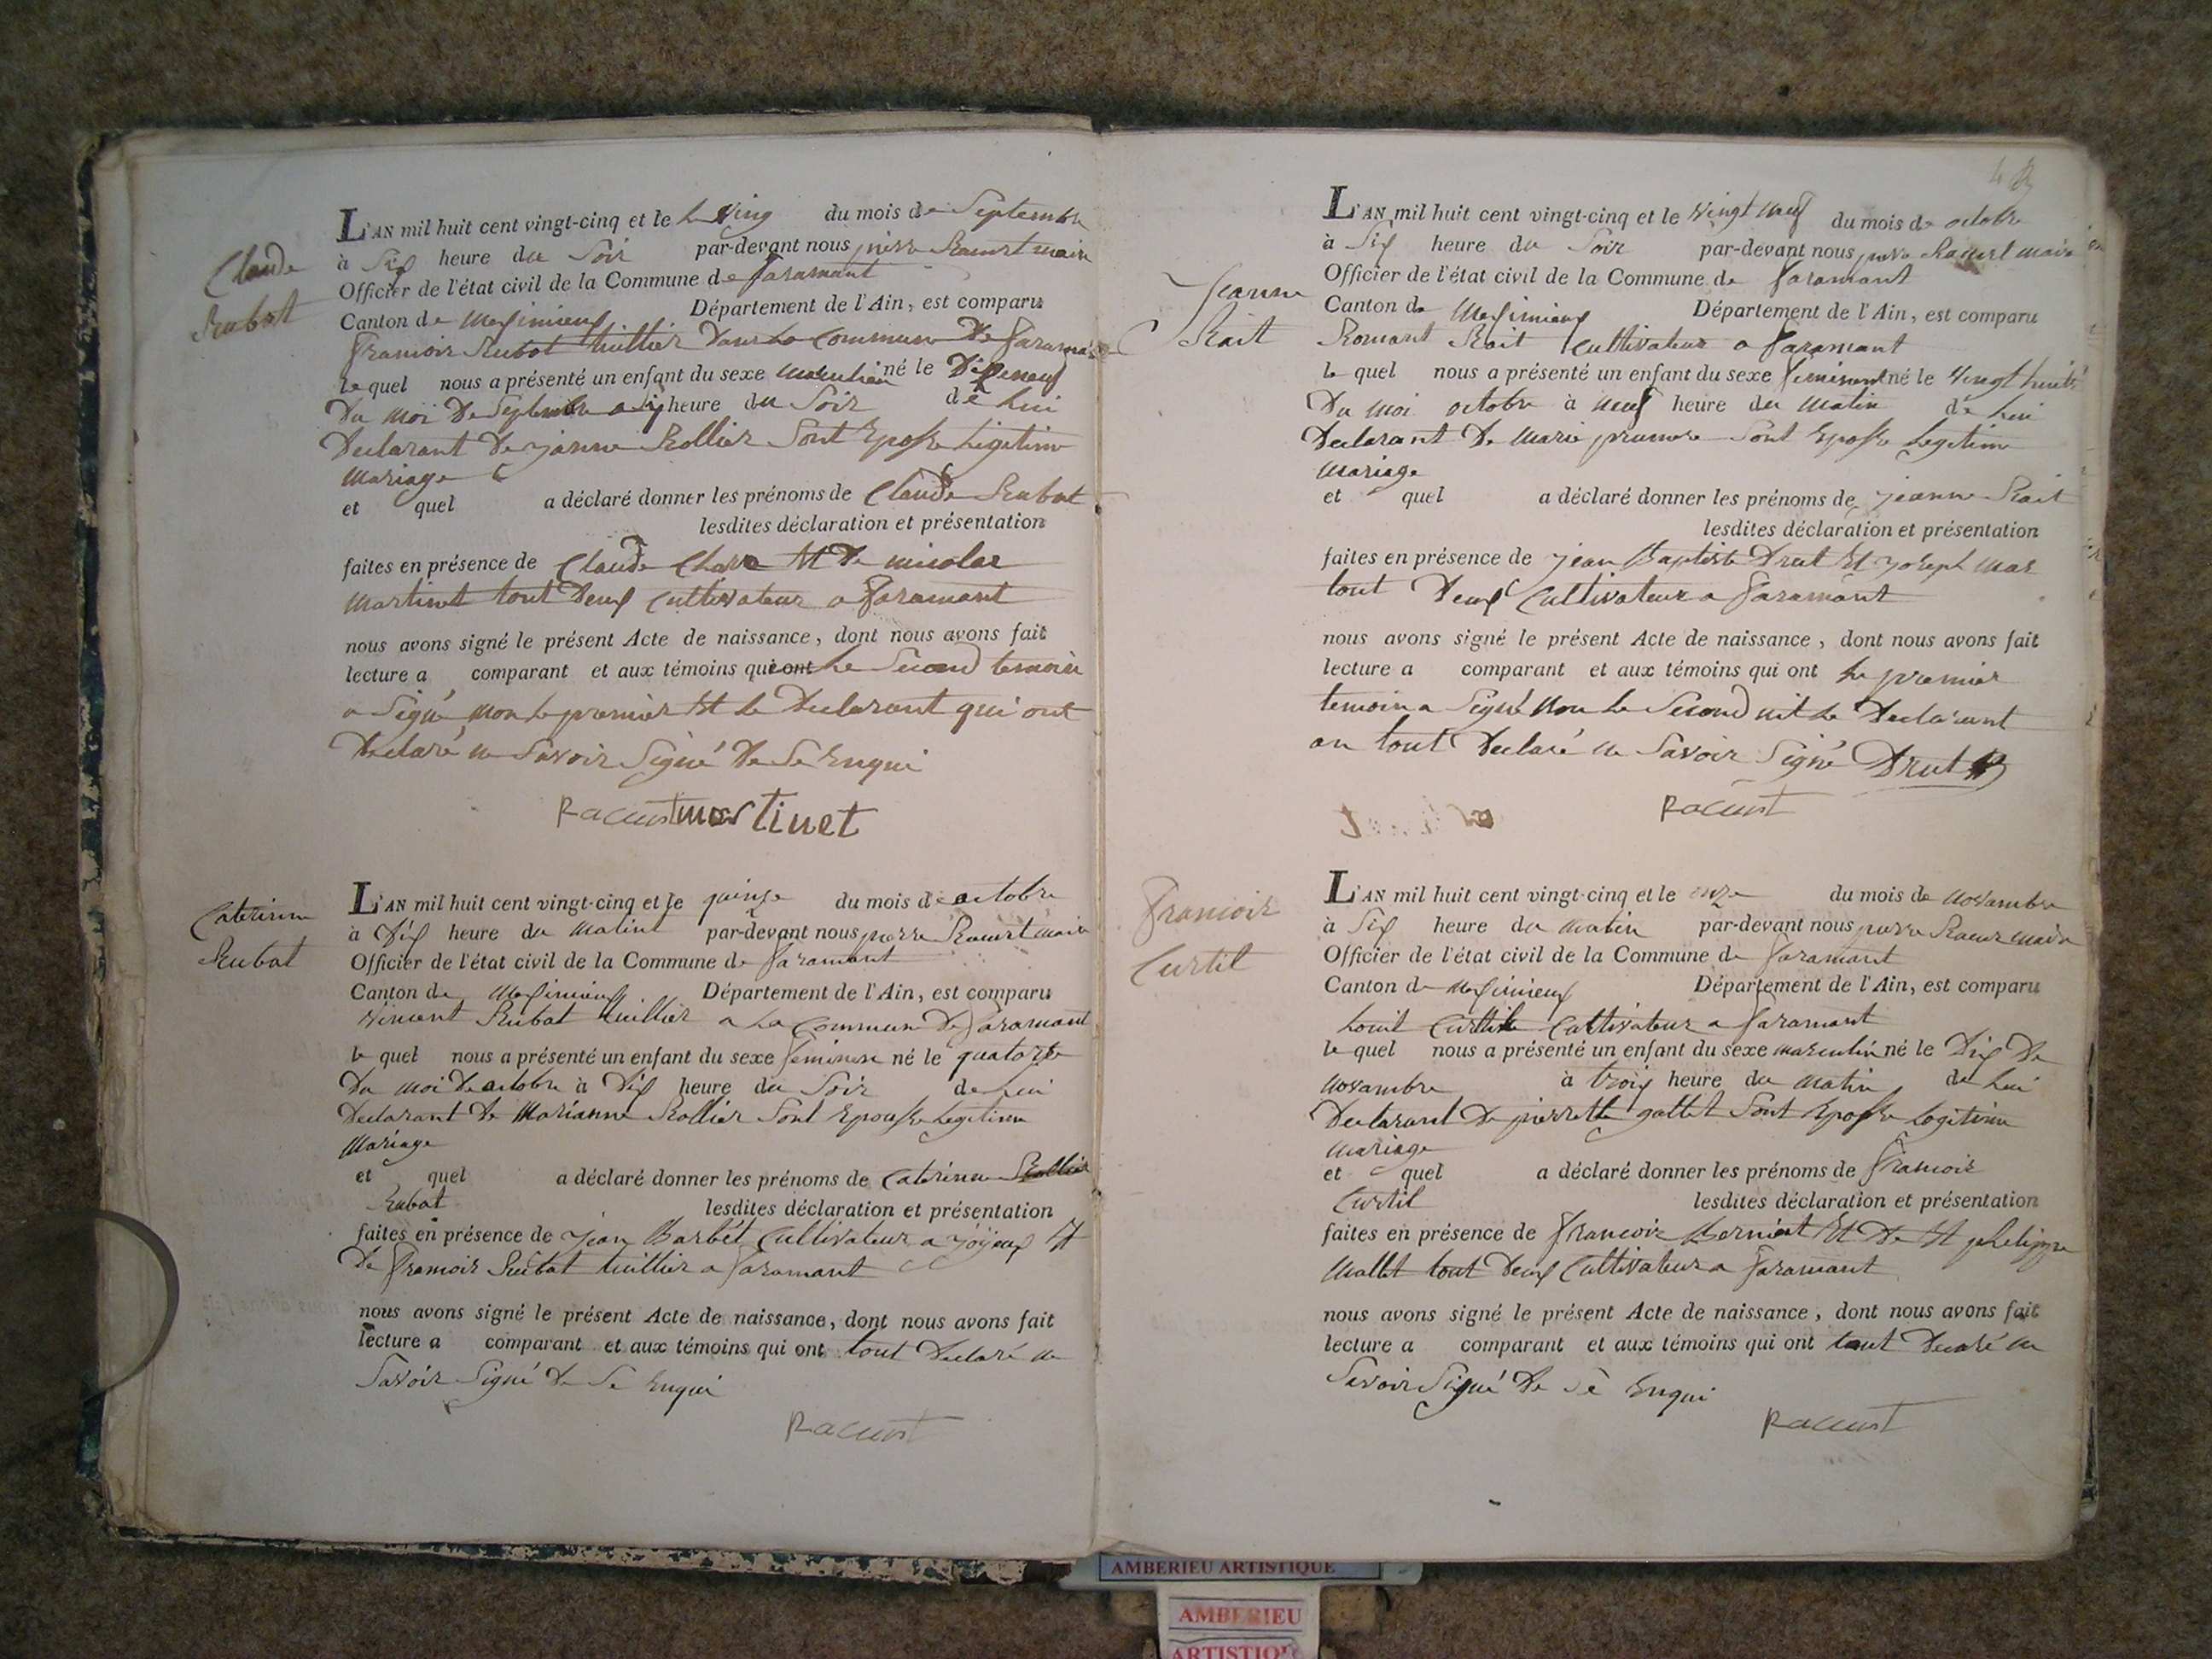 Claude
Rubat
L'AN mil huit cent vingt-cinq et le le ving du mois de Septembre
à Six heure du Soir par-devant nous pierre Racurt maire
Officier de l'état civil de la Commune de faramant
Canton de Meximieux Département de l'Ain, est comparu
francois Rubat tuillier Dans La Commune De faramant
le quel nous a présenté un enfant du sexe masculien né le Dixneuf
Du moi De Septembre a Six heure du Soir de Lui
Declarant De jeanne Rollier Sont Eposse Legitime
Mariage
et quel a déclaré donner les prénoms de Claude Rubat
lesdites déclaration et présentation
faites en présence de Claude Et De nicolas
Martinet tout Deux Cultivateur a faramant
nous avons signé le présent Acte de naissance, dont nous avons fait
lecture a comparant et aux témoins qui ont Le Second temoin
a Signé Non Le premier Et Le Declarant qui ont
Declaré ne Savoir Signé De Se Enqui
Racurt martinet
Caterinne
Rubat
L'AN mil huit cent vingt-cinq et le quinse du mois de octobre
à Dix heure du Matint par-devant nous pierre Racurt maire
Officier de l'état civil de la Commune de faramant
Canton de Meximieux Département de l'Ain, est comparu
Vincent Rubat tuillier a La Commune De faramant
le quel nous a présenté un enfant du sexe feminin né le quatorse
Du moi De octobre à Dix heure du Soir de Lui
Declarant De Marianne Rollier Sont Epousse Legitime
Mariage
et quel a déclaré donner les prénoms de Caterinne Rollier
Rubat lesdites déclaration et présentation
faites en présence de jean Barbet Cultivateur a joyeux Et
De francois Rubat tuillier a faramant
nous avons signé le présent Acte de naissance, dont nous avons fait
lecture a comparant et aux témoins qui ont tout Declaré ne
Savoir Signé De Se Enqui
Racurt
Jeanne
Rait
L'AN mil huit cent vingt-cinq et le Vingt neuf du mois de octobre
à Six heure du Soir par-devant nous pierre Racurt maire
Officier de l'état civil de la Commune de faramant
Canton de Meximieux Département de l'Ain, est comparu
Romant Rait Cultivateur a faramant
le quel nous a présenté un enfant du sexe né le Vingt huit
Du moi octobre à neuf heure du Matin de Lui
Declarant De Marie Sont Eposse Legitime
Mariage
et quel a déclaré donner les prénoms de jeanne Rait
lesdites déclaration et présentation
faites en présence de jean Baptiste Drut Et joseph Mas
tout Deux Cultivateur a faramant
nous avons signé le présent Acte de naissance, dont nous avons fait
lecture a comparant et aux témoins qui ont Le premier
temoin a Signé Non Le Second nit Le Declarant
on tout Declaré ne Savoir Signé Drut
Racurt
francois
Curtil
L'AN mil huit cent vingt-cinq et le onze du mois de Novambre
à Six heure du Matin par-devant nous pierre Racur maire
Officier de l'état civil de la Commune de faramant
Canton de Meximieux Département de l'Ain, est comparu
Louit Curtil Cultivateur a faramant
le quel nous a présenté un enfant du sexe masculin né le Dix De
Novambre à troix heure du Matin de Lui
Declarant De pierrette gallet Sont Eposse Legitime
Mariage
et quel a déclaré donner les prénoms de francois
Curtil lesdites déclaration et présentation
faites en présence de francois Et De Et
Mallet tout Deux Cultivateur a faramant
nous avons signé le présent Acte de naissance, dont nous avons fait
lecture a comparant et aux témoins qui ont tout ne
Savoir Signé De Sè Enqui
Racurt
AMBERIEU ARTISTIQUE
AMBERIEU